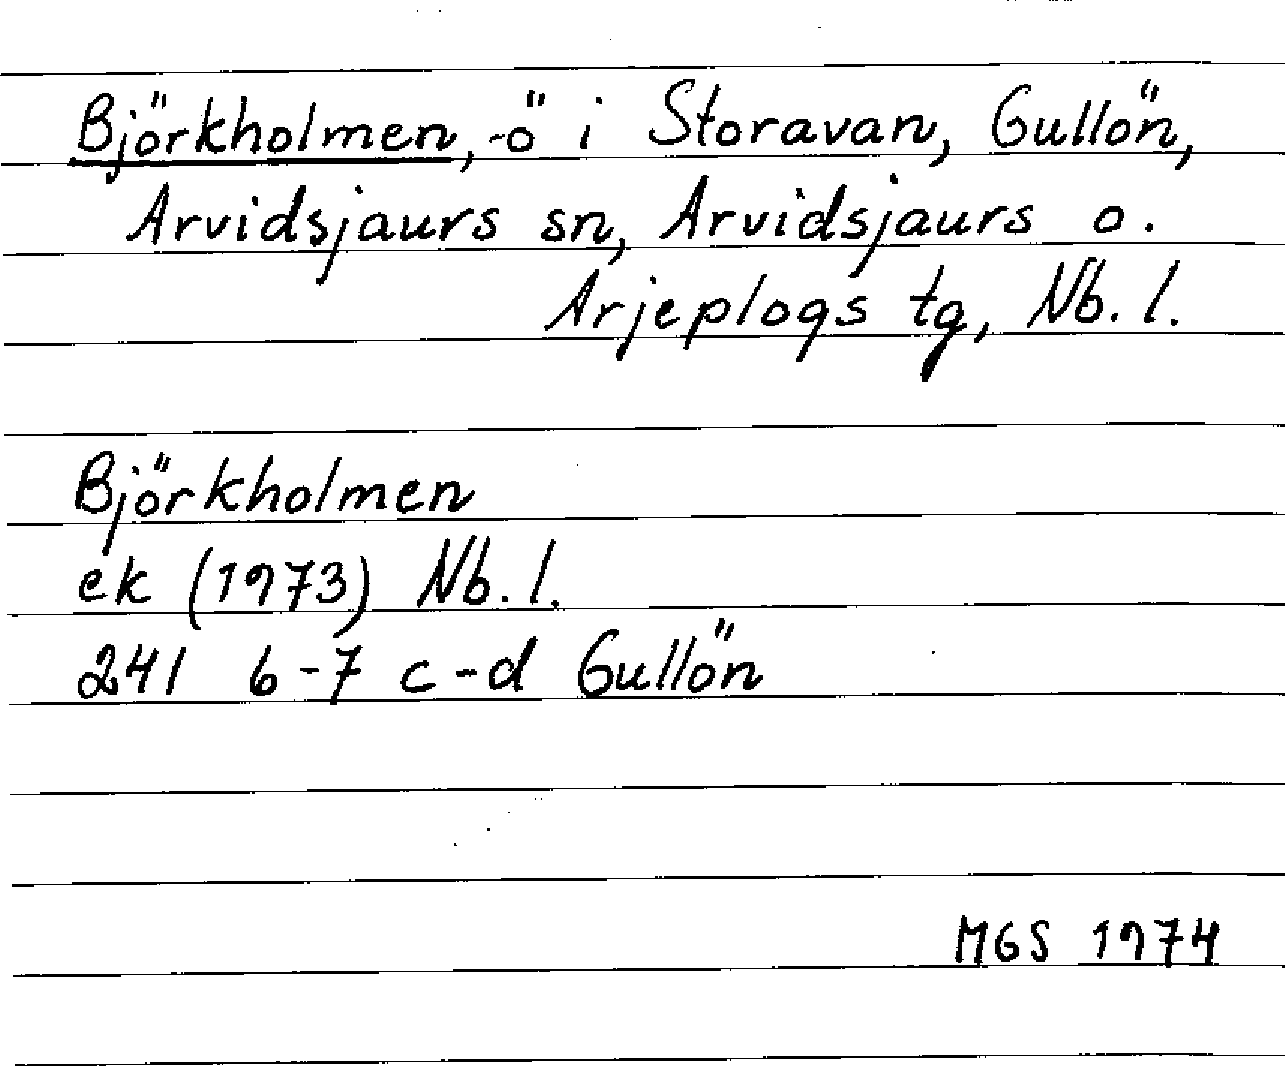 Björkholmen, -ö i Storavan, Gullön,
Arvidsjaurs sn, Arvidsjaurs o.
Arjeplogs tg, Nb. l.
Björkholmen
ek (1973) Nb. l.
241 6-7 c-d Gullön
MGS 1974